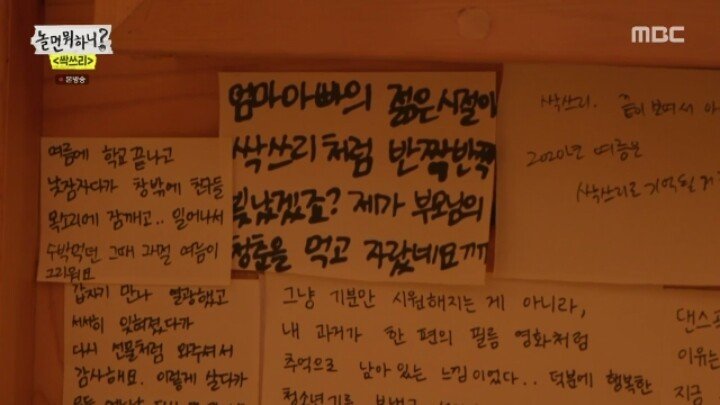 놀면 뭐하니?
<싹쓰리>
본방송
MBC
엄마아빠의 젊은시절이
싹쓰리처럼 반짝반짝
빛났겠죠? 제가 부모님의
청춘을 먹고 자랐네요
여름에 학교 끝나고
낮잠자다가 창밖에 친구들
목소리에 잠깨고.. 일어나서
수박먹던 그때 그시절 여름이
그리워요
싹쓰리. 끝이 보여서 아
2020년 여름은
싹쓰리로 기억될 거
갑자기 만나 열광했고
서서히 잊혀졌다가
다시 선물처럼 와주셔서
감사해요. 이렇게 살다가
그냥 기분만 시원해지는 게 아니라,
내 과거가 한 편의 필름 영화처럼
추억으로 남아있는 느낌이었다... 덕분에 행복한
청소년기를 보내고
댄스
이유는
지금